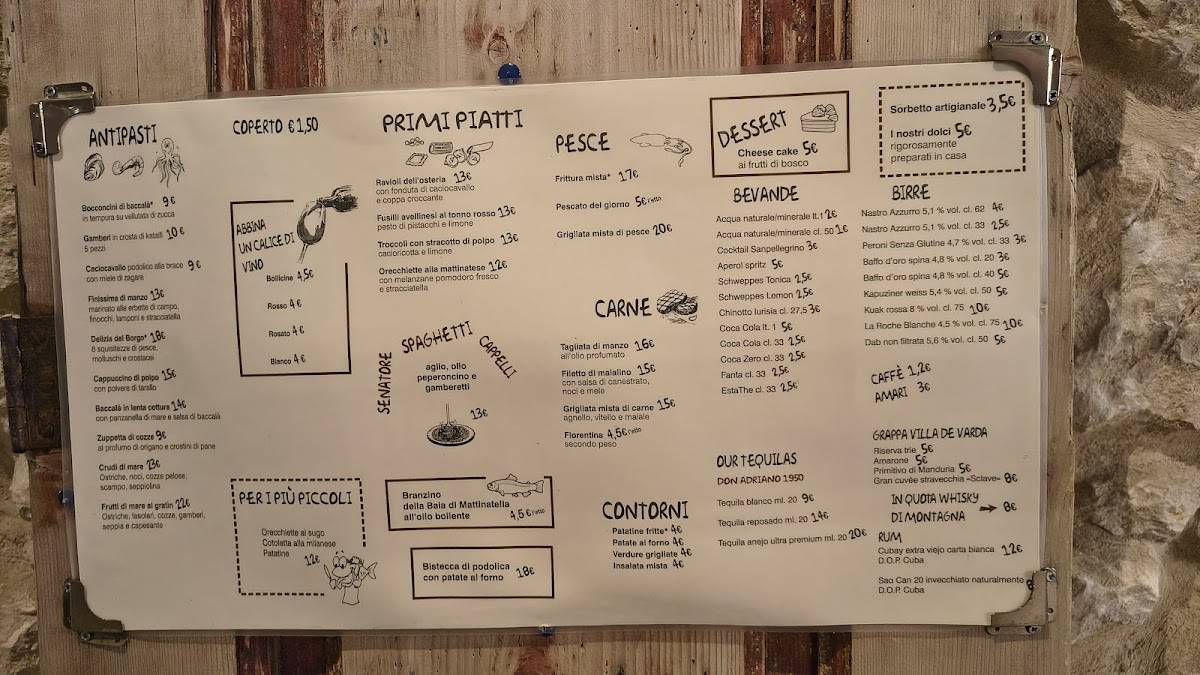 ANTIPASTI
Bocconcini di baccalà* 9€
in tempura su vellutata di zucca
Gamberi in crosta di kataifi 10€
5 pezzi
Caciocavallo podolico alla brace 9€
con miele di zagare
Finissima di manzo 13€
marinato alle erbette di campo,
finocchi, lamponi e stracciatella
Delizia del Borgo* 18€
8 squisitezze di pesce,
molluschi e crostacei
Cappuccino di polpo 15€
con polvere di tarallo
Baccalà in lenta cottura 14€
con panzanella di mare e salsa di baccalà
Zuppetta di cozze 9€
al profumo di origano e crostini di pane
Crudi di mare 23€
Ostriche, noci, cozze pelose,
scampo, seppiolina
Frutti di mare al gratin 22€
Ostriche, fasolari, cozze, gamberi,
seppia e capesante
COPERTO €1,50
ABBINA
UN CALICE DI
VINO
Bollicine 4,5€
Rosso 4€
Rosato 4€
Bianco 4€
PER I PIÙ PICCOLI
Orecchiette al sugo
Cotoletta alla milanese
Patatine
12€
PRIMI PIATTI
Ravioli dell'osteria 13€
con fonduta di caciocavallo
e coppa croccante
Fusilli avellinesi al tonno rosso 13€
pesto di pistacchi e limone
Troccoli con stracotto di polpo 13€
cacioricotta e limone
Orecchiette alla mattinatese 12€
con melanzane pomodoro fresco
e stracciatella
SENATORE
SPAGHETTI
CAPPELLI
aglio, olio
peperoncino e
gamberetti
13€
Branzino
della Baia di Mattinatella
all'olio bollente 4,5€ l'etto
Bistecca di podolica
con patate al forno 18€
PESCE
Frittura mista* 17€
Pescato del giorno 5€ l'etto
Grigliata mista di pesce 20€
CARNE
Tagliata di manzo 16€
all'olio profumato
Filetto di maialino 15€
con salsa di canestrato,
noci e mele
Grigliata mista di carne 15€
agnello, vitello e maiale
Fiorentina 4,5€ l'etto
secondo peso
CONTORNI
Patatine fritte* 4€
Patate al forno 4€
Verdure grigliate 4€
Insalata mista 4€
DESSERT
Cheese cake 5€
ai frutti di bosco
Sorbetto artigianale 3,5€
I nostri dolci 5€
rigorosamente
preparati in casa
BEVANDE
Acqua naturale/minerale lt.1 2€
Acqua naturale/minerale cl. 50 1€
Cocktail Sanpellegrino 3€
Aperol spritz 5€
Schweppes Tonica 2,5€
Schweppes Lemon 2,5€
Chinotto lurisia cl. 27,5 3€
Coca Cola lt. 1 5€
Coca Cola cl. 33 2,5€
Coca Zero cl. 33 2,5€
Fanta cl. 33 2,5€
EstaThe cl. 33 2,5€
OUR TEQUILAS
DON ADRIANO 1950
Tequila blanco ml. 20 9€
Tequila reposado ml. 20 14€
Tequila anejo ultra premium ml. 20 20€
BIRRE
Nastro Azzurro 5,1 % vol. cl. 62 4€
Nastro Azzurro 5,1 % vol. cl. 33 2,5€
Peroni Senza Glutine 4,7 % vol. cl. 33 3€
Baffo d'oro spina 4,8 % vol. cl. 20 3€
Baffo d'oro spina 4,8 % vol. cl. 40 5€
Kapuziner weiss 5,4 % vol. cl. 50 5€
Kuak rossa 8 % vol. cl. 75 10€
La Roche Blanche 4,5 % vol. cl. 75 10€
Dab non filtrata 5,6 % vol. cl. 50 5€
CAFFÈ 1,2€
AMARI 3€
GRAPPA VILLA DE VARDA
Riserva trie 5€
Amarone 5€
Primitivo di Manduria 5€
Gran cuvée stravecchia «Sclave» 8€
IN QUOTA WHISKY
DI MONTAGNA → 8€
RUM
Cubay extra viejo carta bianca 12€
D.O.P. Cuba
Sao Can 20 invecchiato naturalmente
D.O.P. Cuba